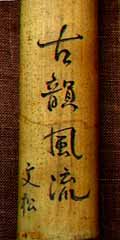 古韻風流
文松